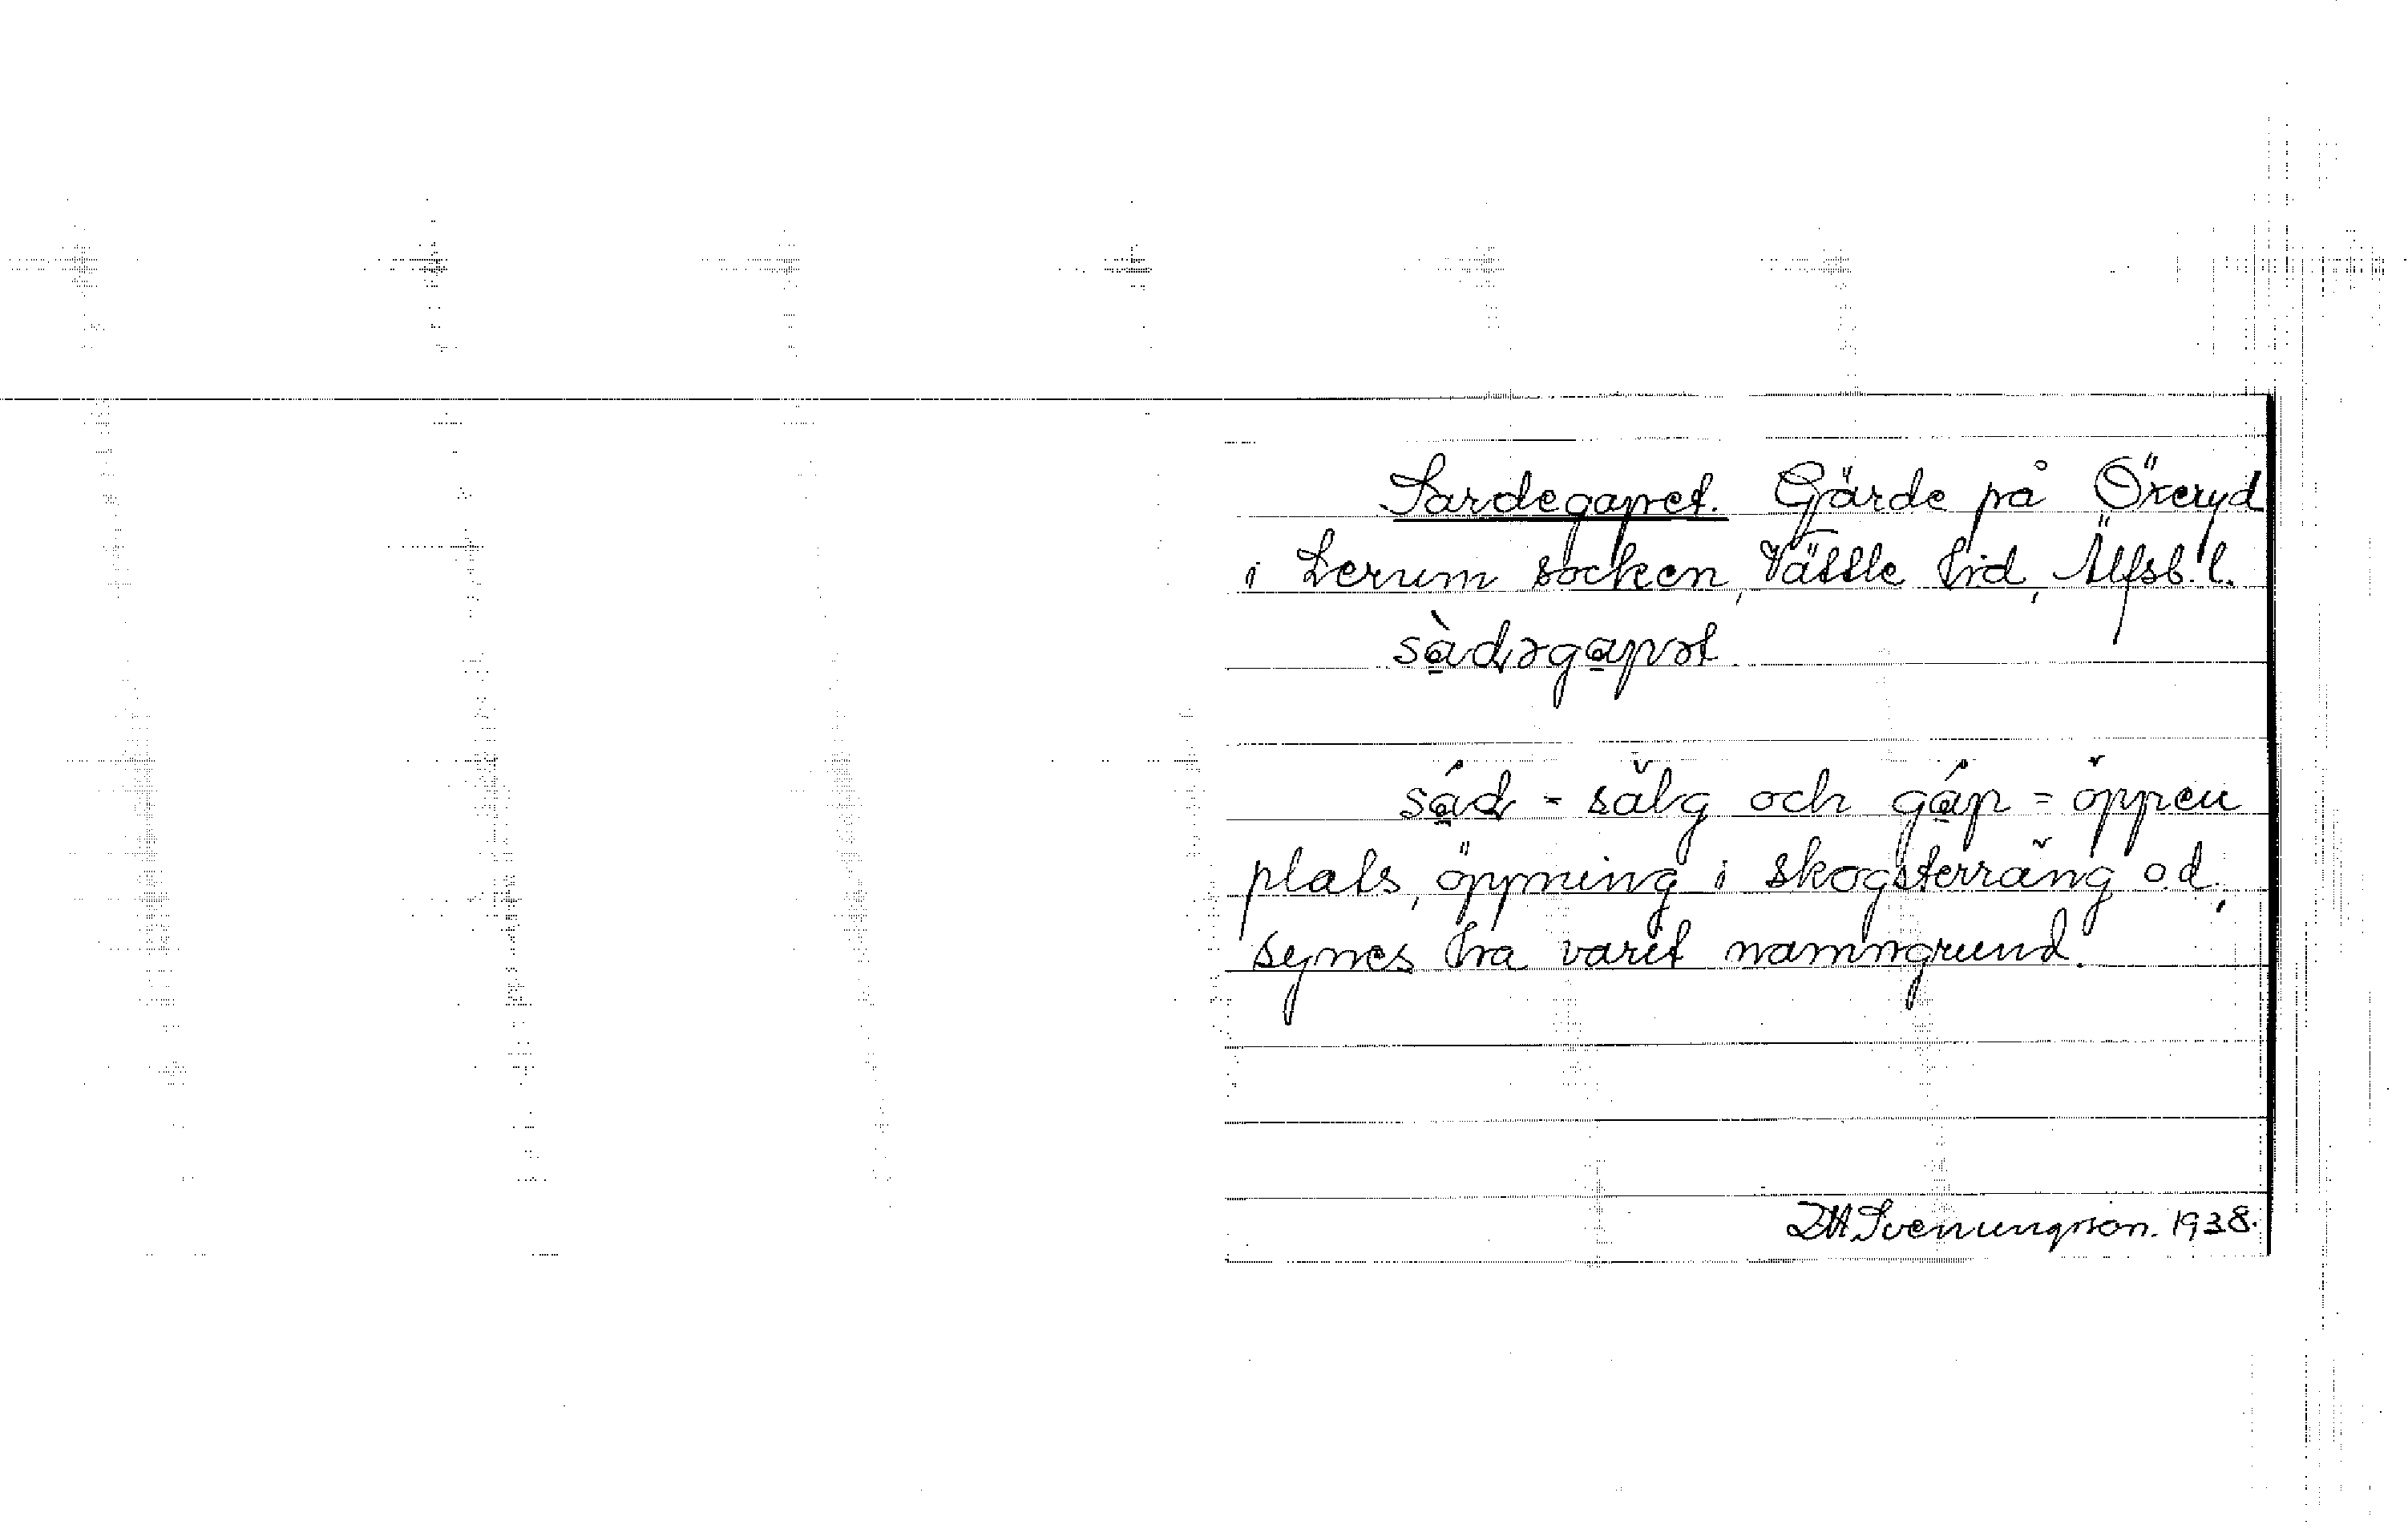 Sardegapet. Gärde på Öxeryd
i Lerum socken, Vättle hrd, Älfsb. l.
sàdəgapət
sád - sälg och gáp = öppen
plats, öppning i skogsterräng o.d.,
synes ha varit namngrund.
Svenungsson. 1938.